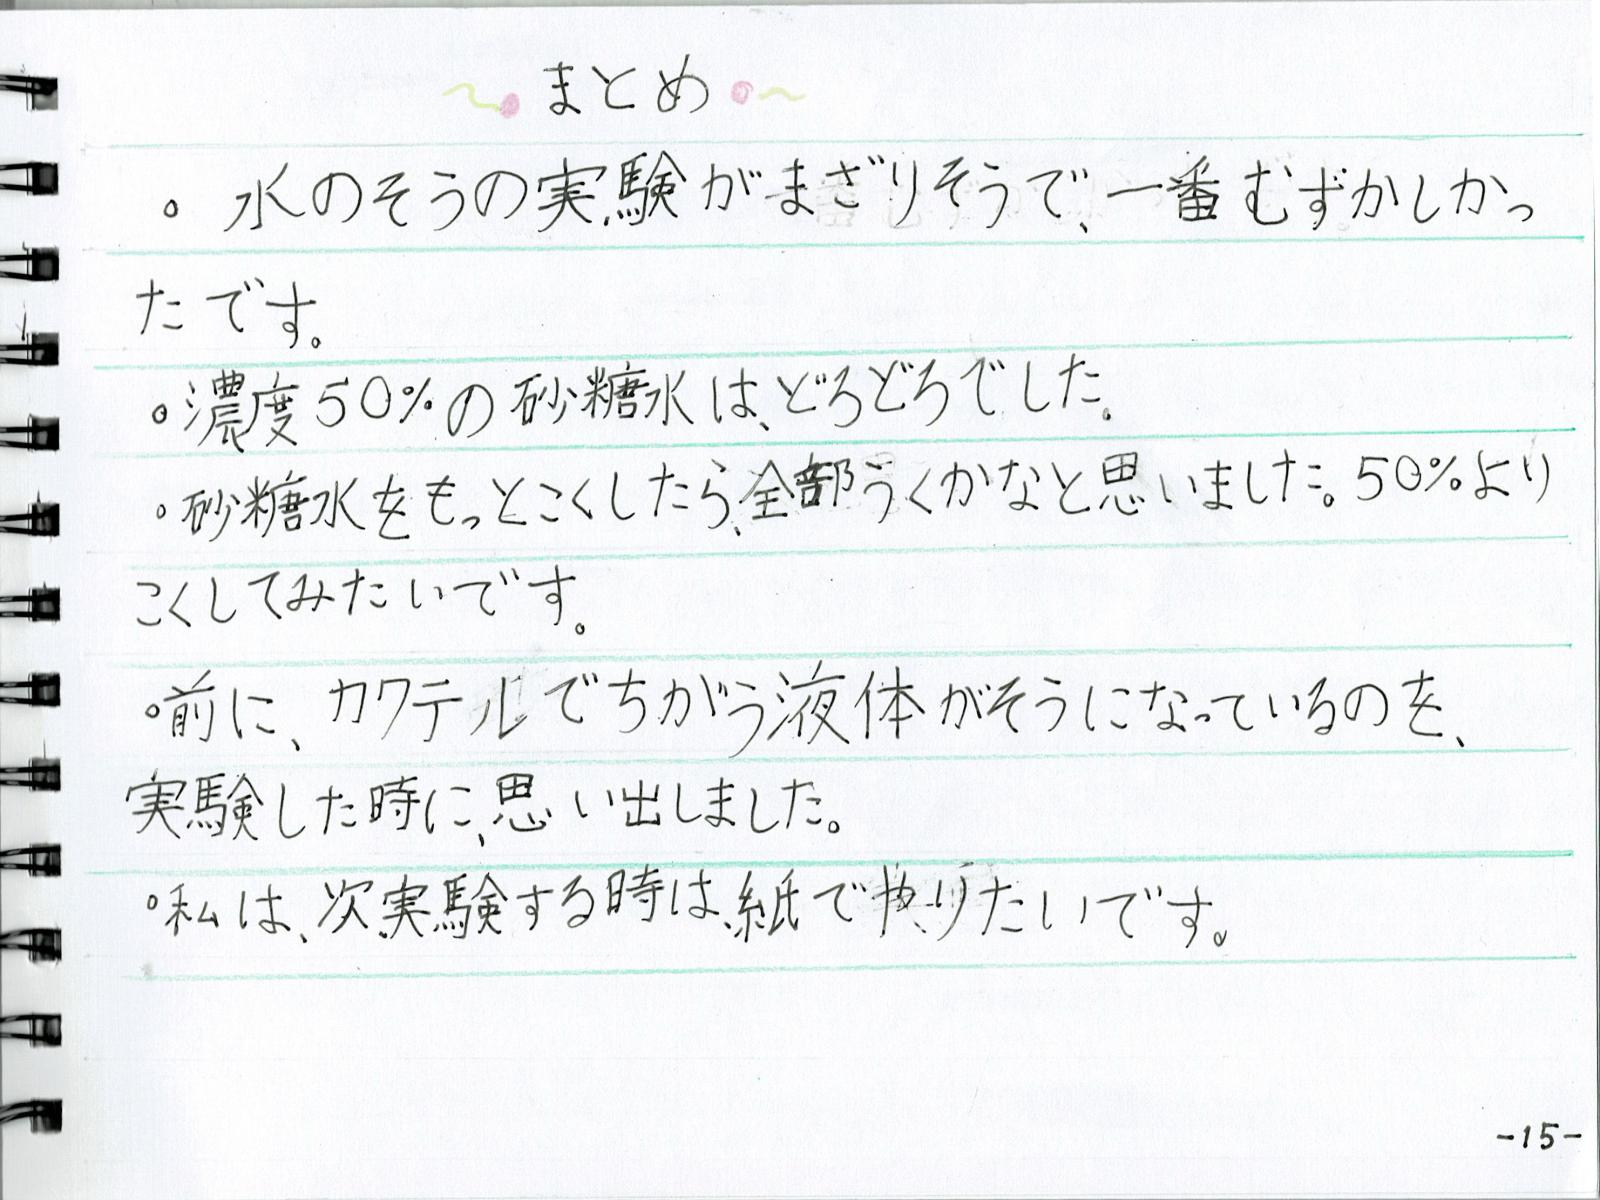 まとめ
。水のそうの実験がまざりそうで、一番むずかしかっ
たです。
。濃度50%の砂糖水は、どろどろでした。
。砂糖水をもっとこくしたら、全部うくかなと思いました。50%より
こくしてみたいです。
。前に、カクテルでちがう液体がそうになっているのを、
実験した時に、思い出しました。
。私は、次実験する時は、紙でやりたいです。
-15-